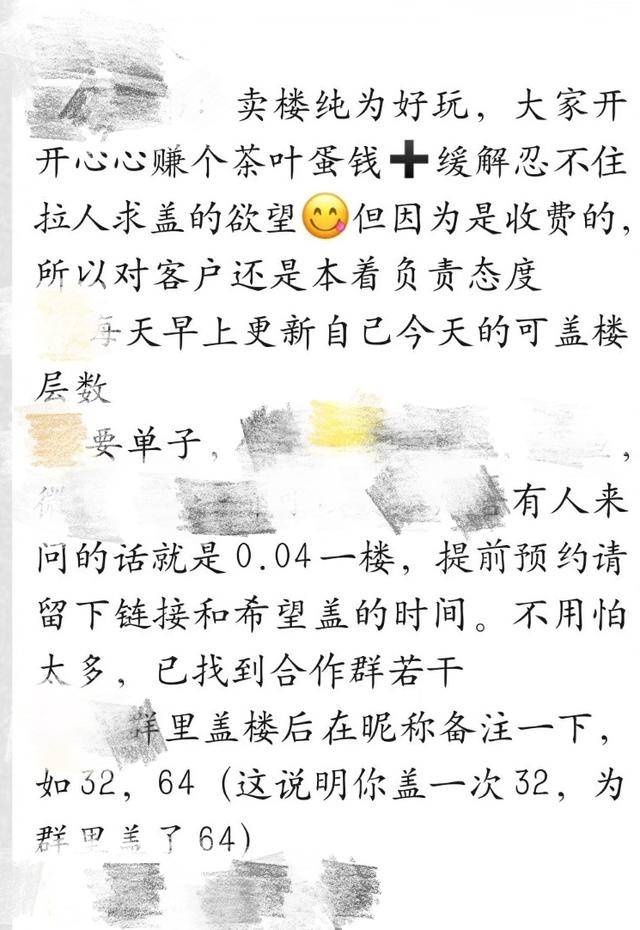 卖楼纯为好玩，大家开
开心心赚个茶叶蛋钱➕缓解忍不住
拉人求盖的欲望😋但因为是收费的，
所以对客户还是本着负责态度
每天早上更新自己今天的可盖楼
层数
要单子，
，
有人来
问的话就是0.04一楼，提前预约请
留下链接和希望盖的时间。不用怕
太多，已找到合作群若干
群里盖楼后在昵称备注一下，
如32，64（这说明你盖一次32，为
群里盖了64）